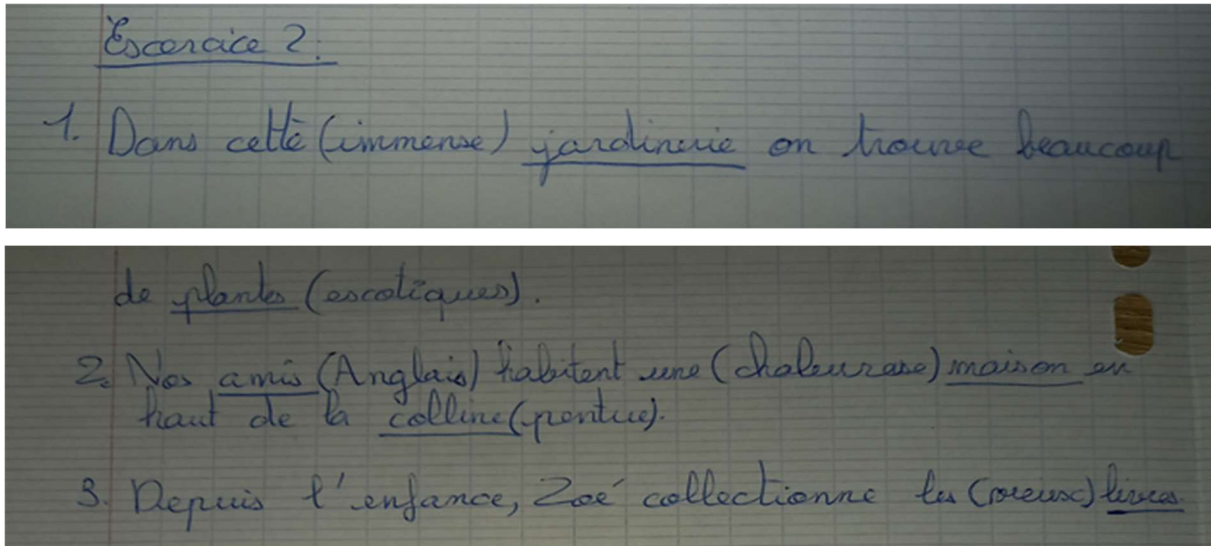 Exercice 2:
1. Dans cette (immense) jardinerie on trouve beaucoup
de plantes (exotiques).
2. Nos amis (Anglais) habitent une (chaleureuse) maison en
haut de la colline (pentue).
3. Depuis l'enfance, Zoé collectionne les (vieux) livres